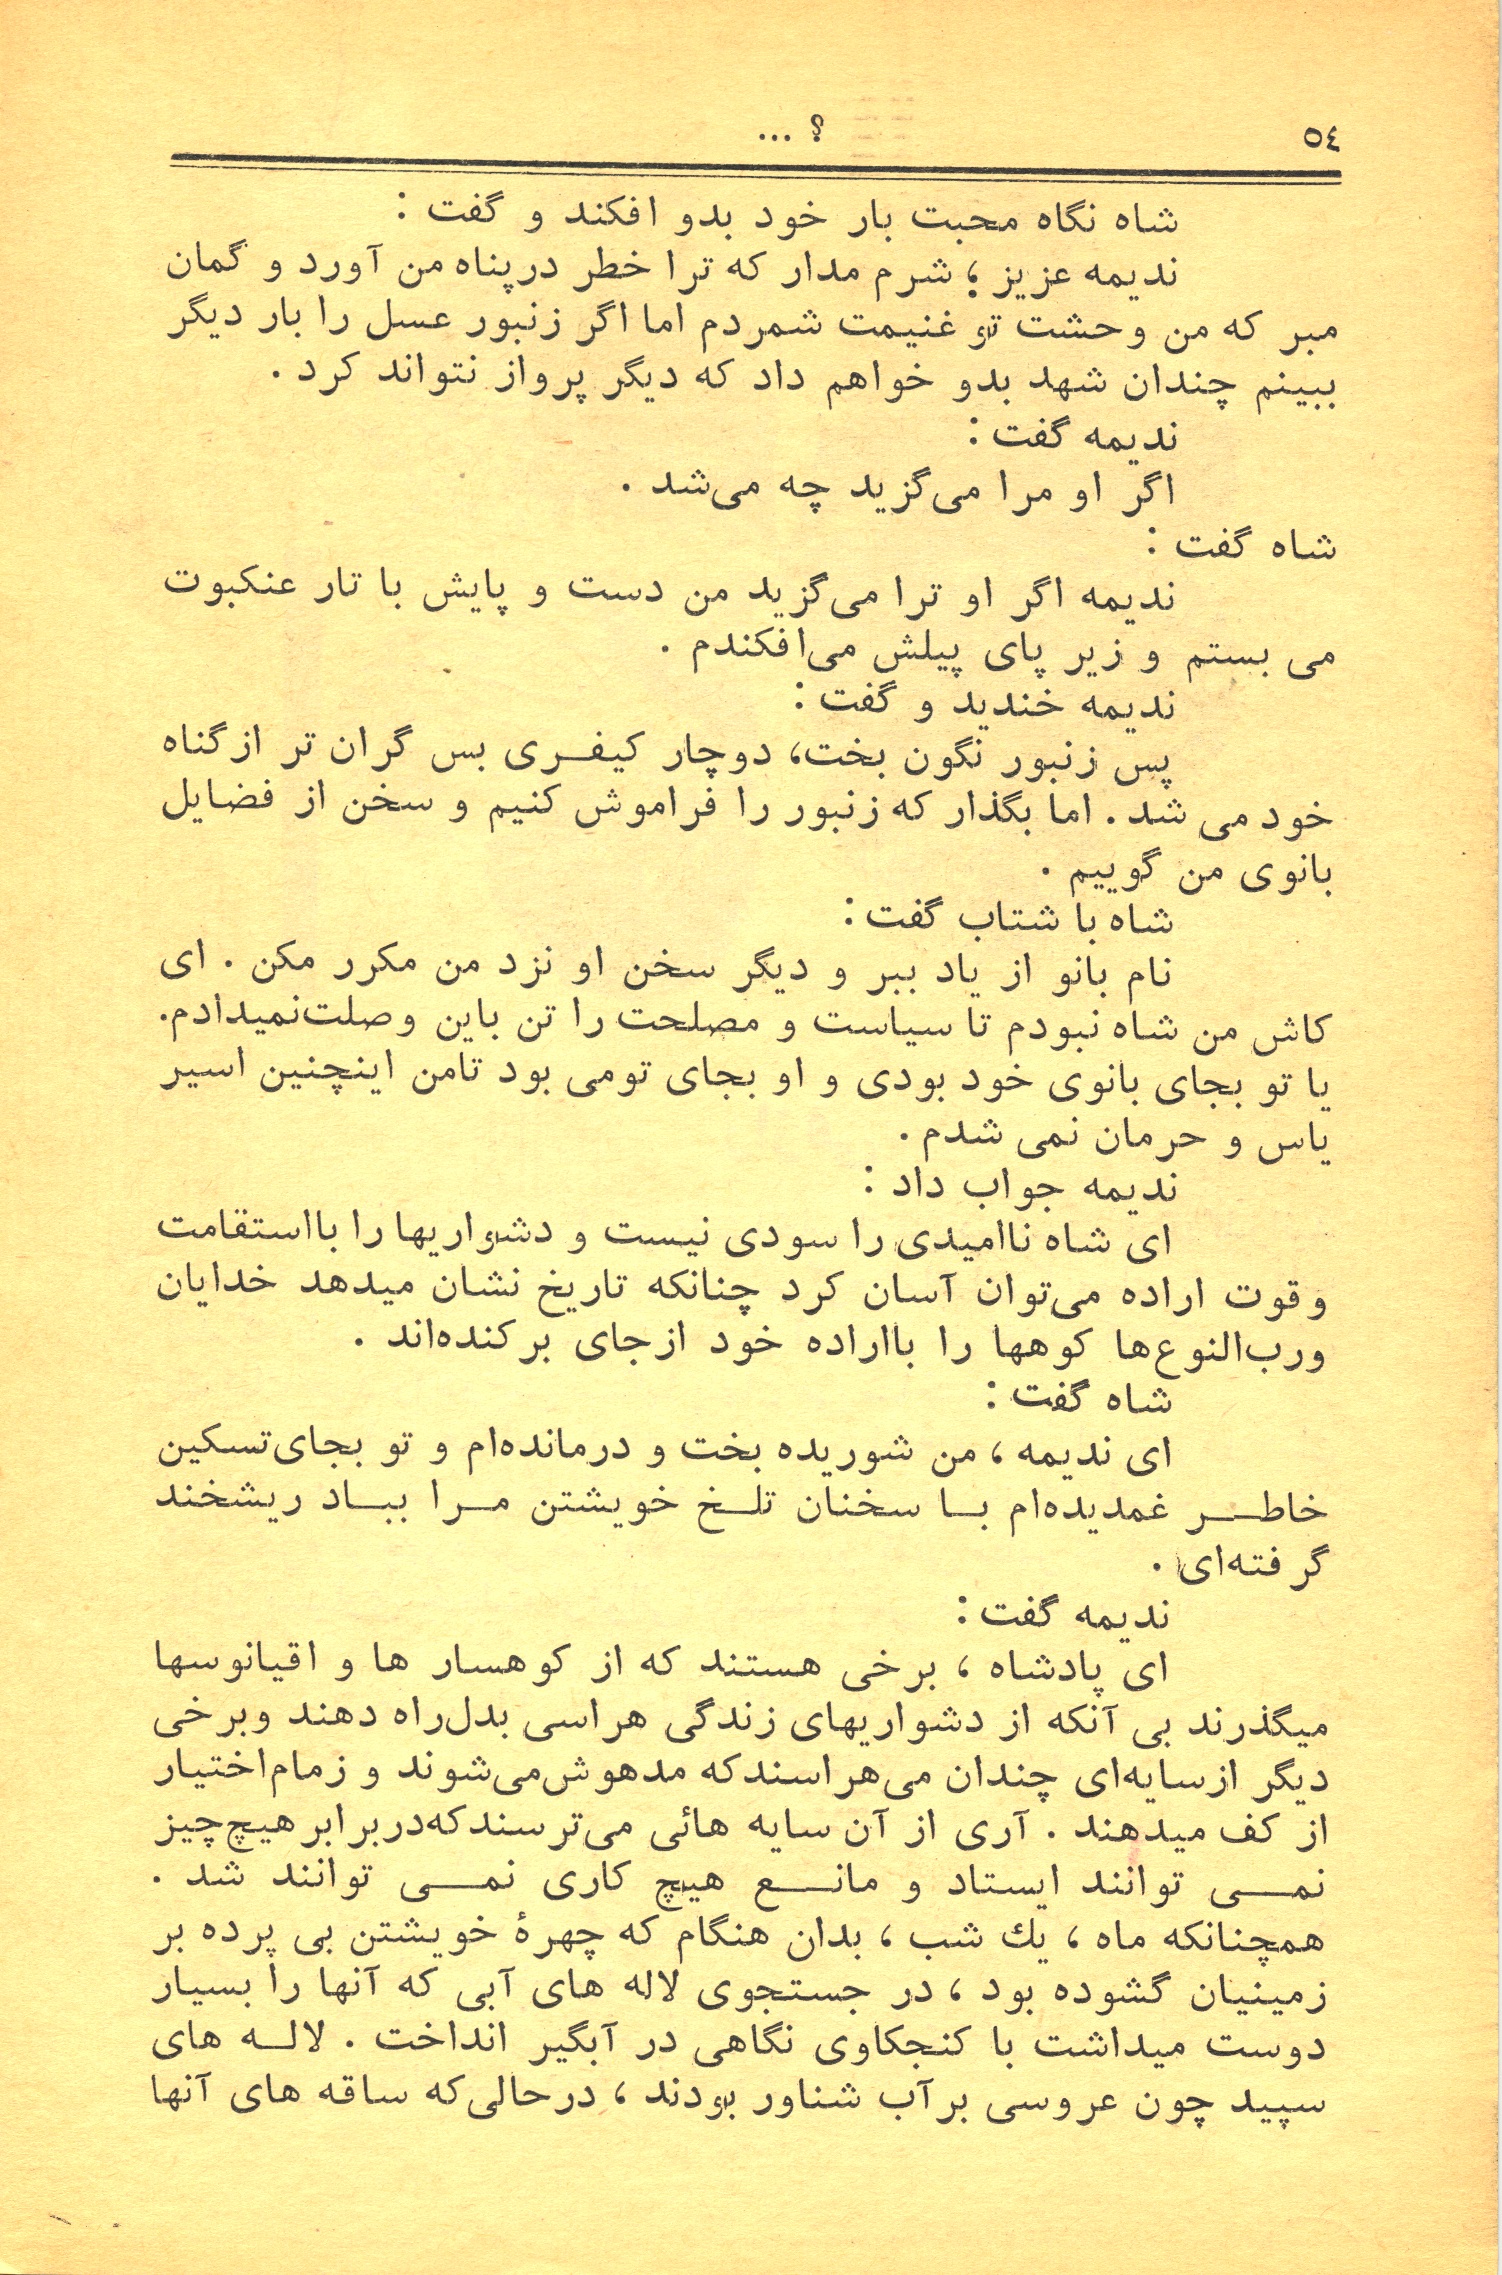 ٥٤
؟ ...
شاه نگاه محبت بار خود بدو افکند و گفت :
ندیمه عزیز ؛ شرم مدار که ترا خطر درپناه من آورد و گمان
مبر که من وحشت تو غنیمت شمردم اما اگر زنبور عسل را بار دیگر
ببینم چندان شهد بدو خواهم داد که دیگر پرواز نتواند کرد .
ندیمه گفت :
اگر او مرا می‌گزید چه می‌شد .
شاه گفت :
ندیمه اگر او ترا می‌گزید من دست و پایش با تار عنکبوت
می بستم و زیر پای پیلش می‌افکندم .
ندیمه خندید و گفت :
پس زنبور نگون بخت، دوچار کیفری بس گران تر از گناه
خود می شد . اما بگذار که زنبور را فراموش کنیم و سخن از فضایل
بانوی من گوییم .
شاه با شتاب گفت :
نام بانو از یاد ببر و دیگر سخن او نزد من مکرر مکن . ای
کاش من شاه نبودم تا سیاست و مصلحت را تن باین وصلت‌نمیدادم.
یا تو بجای بانوی خود بودی و او بجای تومی بود تامن اینچنین اسیر
یاس و حرمان نمی شدم .
ندیمه جواب داد :
ای شاه ناامیدی را سودی نیست و دشواریها را بااستقامت
و قوت اراده می‌توان آسان کرد چنانکه تاریخ نشان میدهد خدایان
ورب‌النوع‌ها کوهها را بااراده خود ازجای برکنده‌اند .
شاه گفت :
ای ندیمه ، من شوریده بخت و درمانده‌ام و تو بجای‌تسکین
خاطر غمدیده‌ام با سخنان تلخ خویشتن مرا بباد ریشخند
گرفته‌ای .
ندیمه گفت :
ای پادشاه ، برخی هستند که از کوهسار ها و اقیانوسها
میگذرند بی آنکه از دشواریهای زندگی هراسی بدل‌راه دهند وبرخی
دیگر ازسایه‌ای چندان می‌هراسندکه مدهوش‌می‌شوند و زمام‌اختیار
از کف میدهند . آری از آن سایه هائی می‌ترسندکه‌دربرابر هیچ‌چیز
نمی توانند ایستاد و مانع هیچ کاری نمی توانند شد .
همچنانکه ماه ، یك شب ، بدان هنگام که چهرهٔ خویشتن بی پرده بر
زمینیان گشوده بود ، در جستجوی لاله های آبی که آنها را بسیار
دوست میداشت با کنجکاوی نگاهی در آبگیر انداخت . لاله های
سپید چون عروسی برآب شناور بودند ، درحالی‌که ساقه های آنها